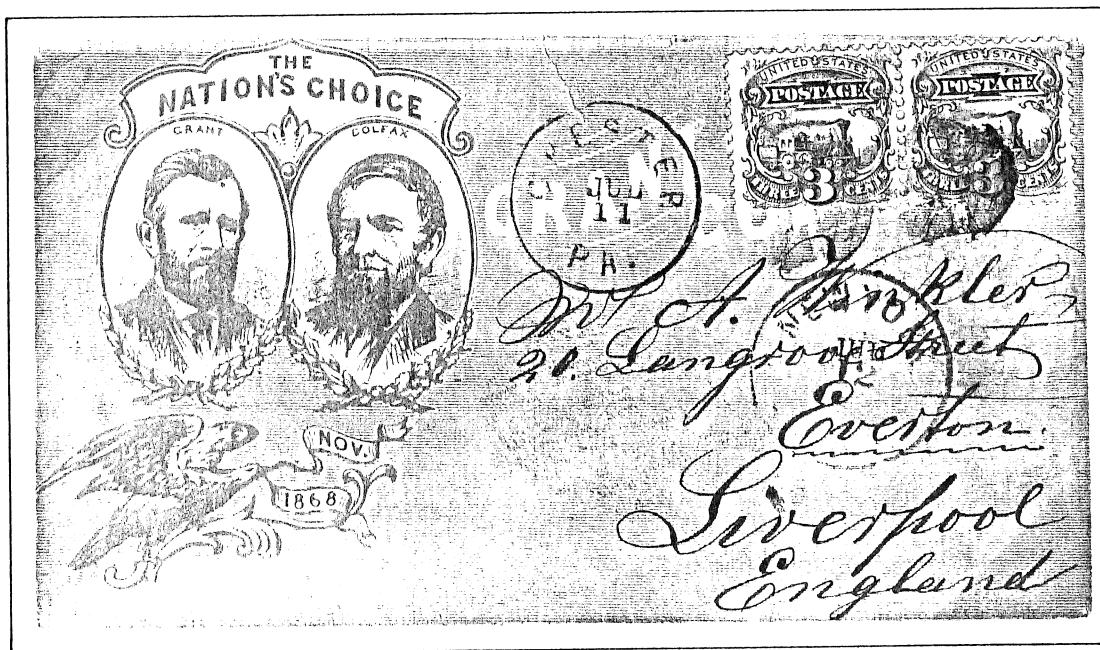 THE
NATION'S CHOICE
GRANT
COLFAX
NOV.
1868
CHESTER
JUL
11
PA.
UNITED STATES
POSTAGE
THREE 3 CENTS
UNITED STATES
POSTAGE
THREE 3 CENTS
Mr A. Winkler
21. Street
Everton.
Liverpool
England